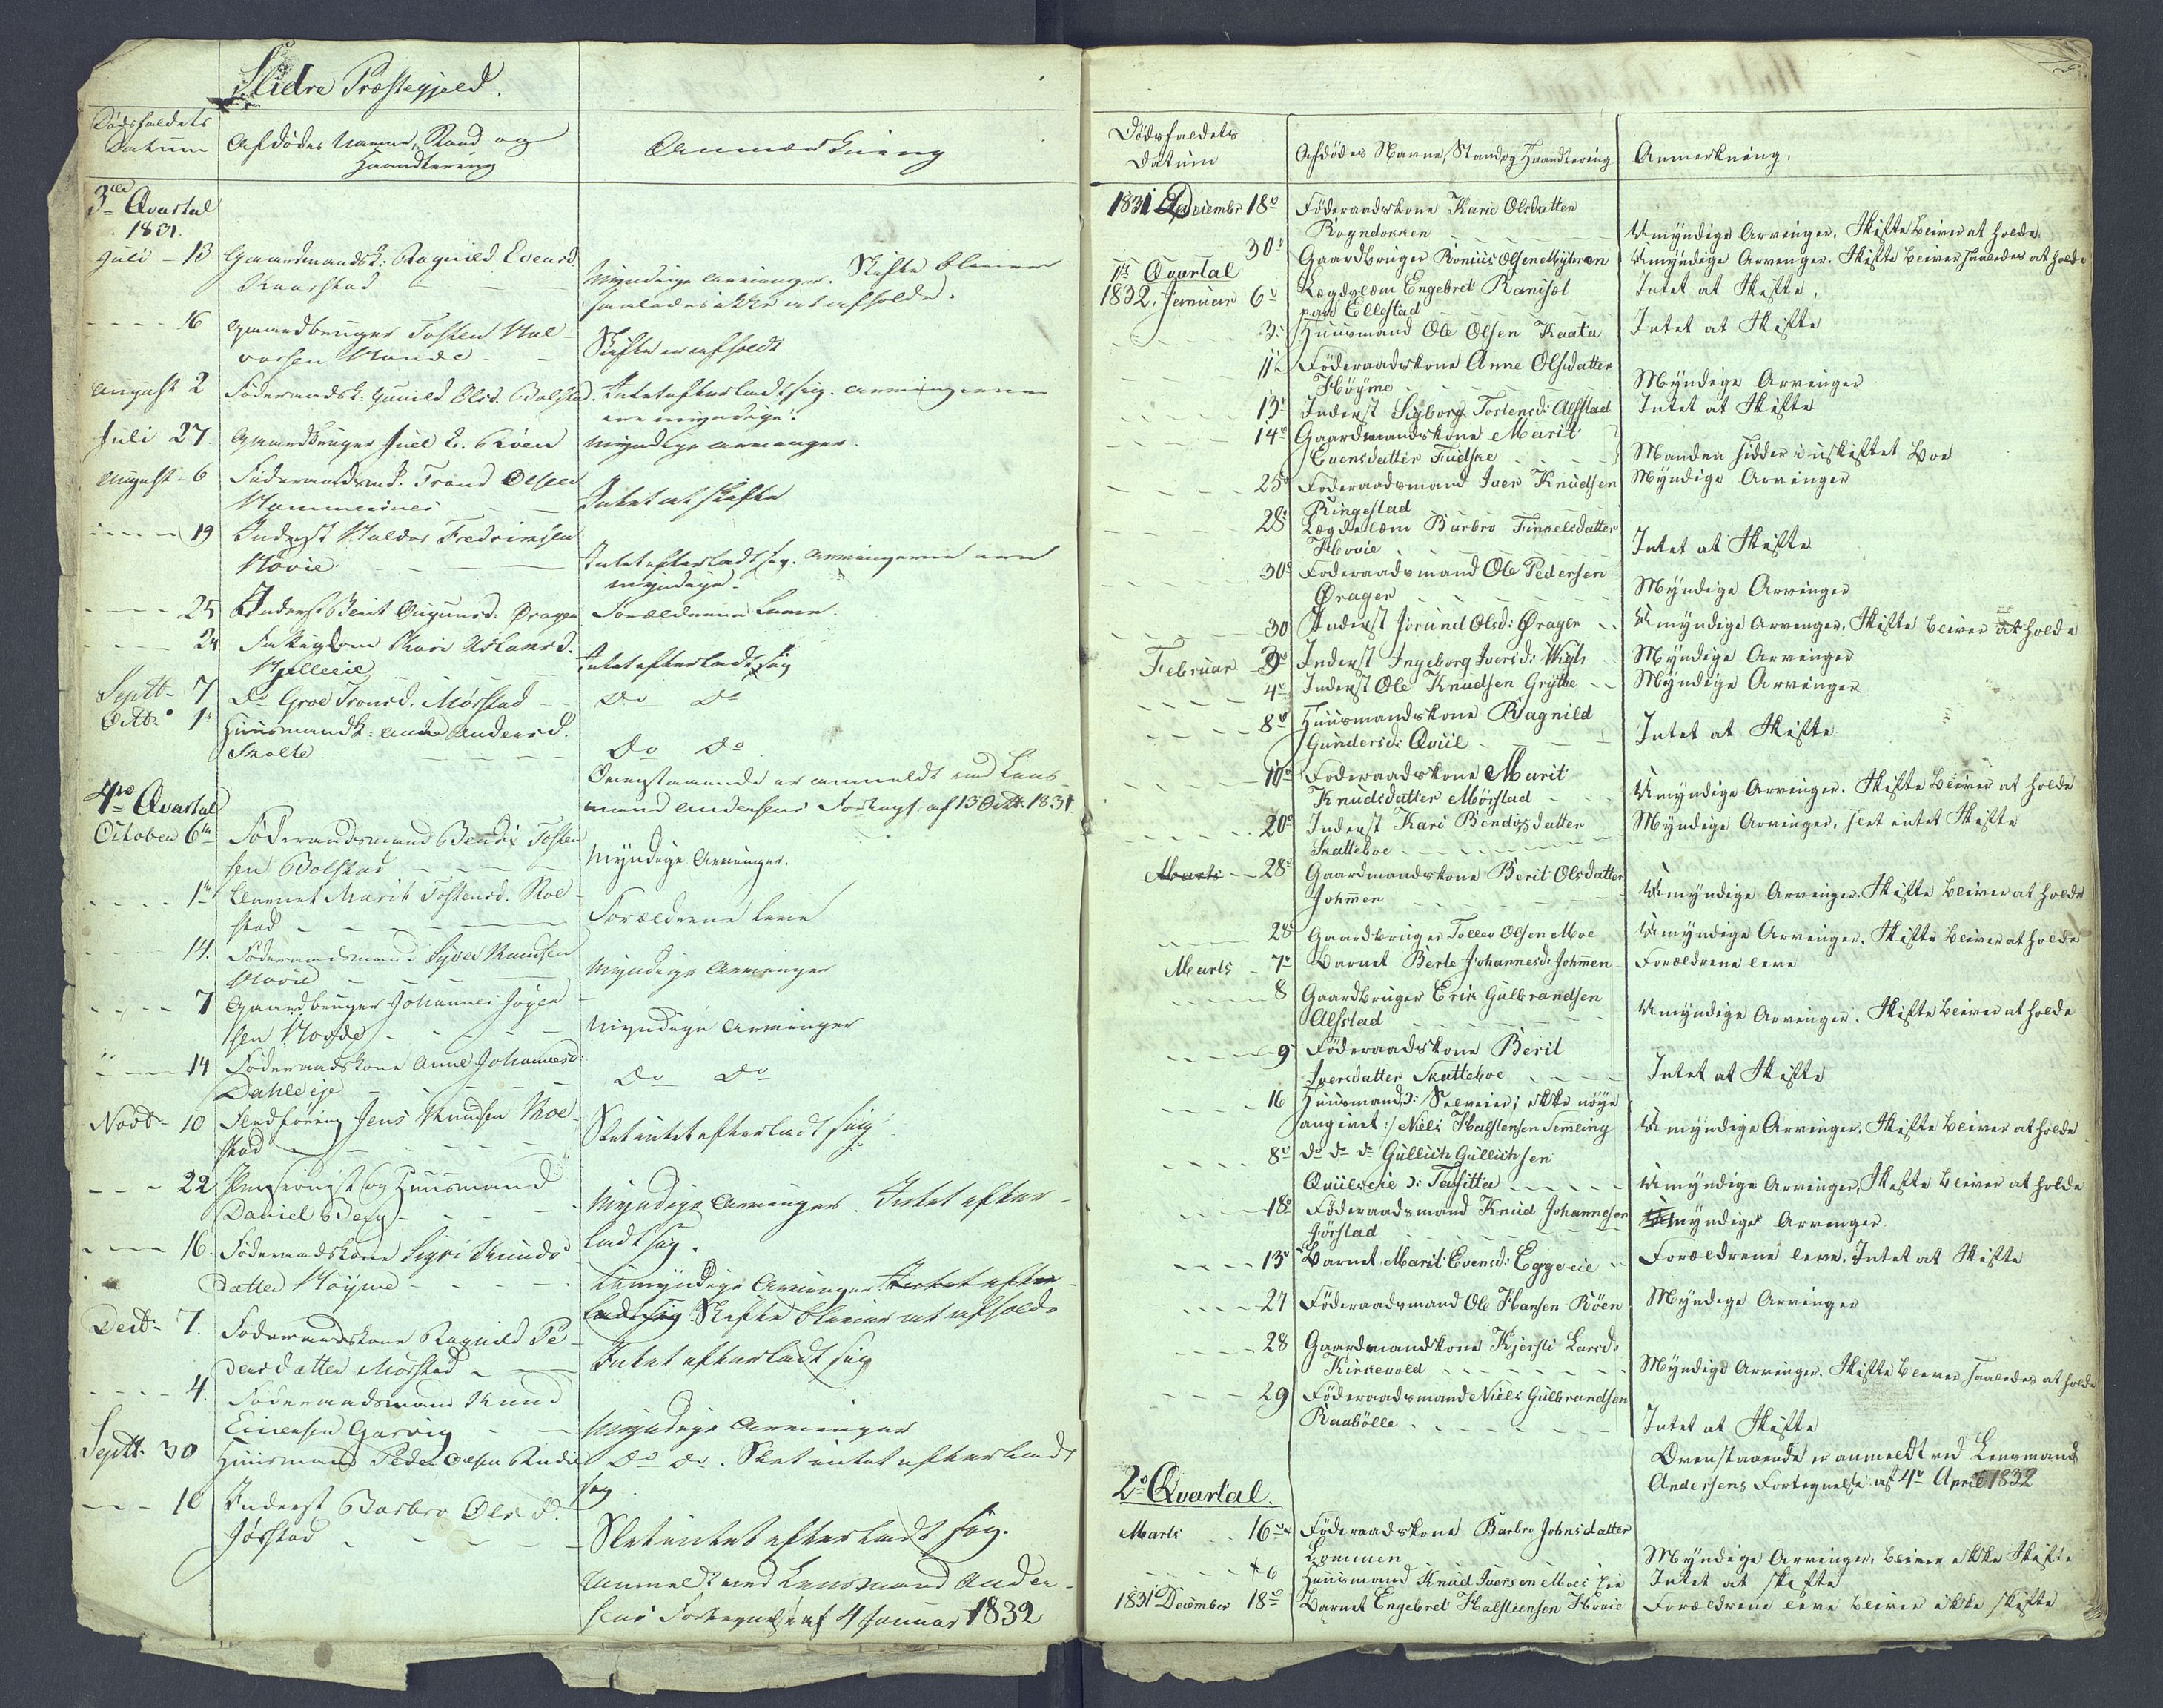 Slidre Præstegjeld.
Dødsfaldets
Datum
Afdødes Namne, Stand og
Haandtering
Anmærkning
3die Qvartal
1831.
Juli - 13 Gaardmandsk: Ragnild Evensd
Kaarstad
Myndige Arvinger. Skifte blever
saaledes ikke at afholde.
- - - - 16 Gaardbruger Tosten Hal-
vorsen Hande
Skifte er afholdt
August 2 Föderaadsk: Gunild Olsd. Bolstad.
Intet efterladt sig. Arvingerne
ere myndige.
Juli 27. Gaardbruger Juel E. Röen
Myndige Arvinger.
August - 6 Föderaadsmd. Trond Olsen
Hammersnes
Intet at skifte
- - - - 19 Inderst Haldor Fredriksen
Hövie
Intet efterladt sig. Arvingerne ere
myndige
- - - - 25 Inderst Berit Øragen
Forældrene leve
- - - 24 Kari Aslaksd.
Intet efterladt sig
Septb. 7 Do Groe Tronsd. Mørstad
Do Do
Octbr. 1s Huusmandsk: Andersd.
Skatte
Do Do
Ovenstaaende er anmeldt ved Lens-
mand Andersens Fortegn. af 13 Octb. 1831
4de Qvartal
October 6te Föderaadsmand Bendix Tosten
sen Bolstad
Myndige Arvinger.
- - - - 1te Barnet Marit Tostensd. Roe-
stad
Forældrene leve
14. Föderaadsmand Syver Knudsen
Hövie
Myndige Arvinger
- - - - 7 Gaardbruger Johannes
sen
Myndige Arvinger
- - - 14 Föderaadskone Anne Johannesd:
Dahleeje
Do Do
Novb- 10 Jens Knudsen Roe-
stad
Slet intet efterladt sig
- - - 22 Pensionist og Huusmand
Daniel Berg
Myndige Arvinger. Intet efter-
ladt sig.
- - - 16. Föderaadskone Sigri Knuds
datter Höyme
Umyndige Arvinger Intet efter-
ladt sig Skifte blever at afholde
Decb- 7. Föderaadskone Ragnild Pe-
dersdatter Mörstad
Intet efterladt sig
- - - - 4. Föderaadsmand Knud
Einersen Garvig
Myndige Arvinger
Septb. 30 Huusmand Peder Olsen
Do Do. Slet intet efterladt
sig
- - - 10 Inderst Barbro Olsd.
Jörstad
Slet intet efterladt sig.
Anmeldt ved Lensmand Ander-
sens Fortegnelse af 4 Januar 1832
Dödsfaldets
Datum
Afdödes Navne, Stand og Haandtering
Anmerkning.
1831 December 18de Föderaadskone Karie Olsdatter
Rogndokken
Umyndige Arvinger. Skifte bliver at holde
30te Gaardbruger Ronius Olsen Myhren
Umyndige Arvinger. Skifte bliver saaledes at holde
1ste Qvartal
1832. Januar 6te Lægdslem Engebret Ranisöl
paa Ellestad
Intet at Skifte.
3. Huusmand Ole Olsen Kaata
Intet at Skifte
11te Föderaadskone Anne Olsdatter
Höyme
Myndige Arvinger
13de Inderst Sigborg Tostensd: Alfstad
Intet at Skifte
14de Gaardmandskone Marit
Evensdatter Fudske
Manden sidder i uskiftet Boe
25de Föderaadsmand Iver Knudsen
Ringestad
Myndige Arvinger
28de Lægdslem Barbro Finkelsdatter
Hovie
Intet at Skifte
30te Föderaadsmand Ole Pedersen
Örager
Myndige Arvinger
30 Inderst Jorund Olsd: Örager
Umyndige Arvinger. Skifte bliver at holde
Februar 3de Inderst Ingeborg Iversd: Wigh
Myndige Arvinger
4de Inderst Ole Knudsen Grytte
Myndige Arvinger
8de Huusmandskone Ragnild
Gundersd: Qviil
Intet at Skifte
10de Föderaadskone Marit
Knudsdatter Mörstad
Umyndige Arvinger. Skifte bliver at holde
20de Inderst Kari Bendixdatter
Skatteboe
Myndige Arvinger, slet intet Skifte
Marts 28de Gaardmandskone Berit Olsdatter
Johmen
Umyndige Arvinger. Skifte bliver at holde
28de Gaardbruger Tollev Olsen Moe
Umyndige Arvinger. Skifte bliver at holde
Marts 7de Barnet Berte Johannesd: Johmen
Forældrene leve
8 Gaardbruger Erik Gulbrandsen
Alfstad
Umyndige Arvinger. Skifte bliver at holde
9 Föderaadskone Berit
Iversdatter Skatteboe
Intet at Skifte
16 Huusmand /: Selveier; ikke nöye
angivet :/ Niels Halstensen Semeling
Umyndige Arvinger, Skifte bliver at holde
8de do do do Gullich Gullichsen
Qviilseie
Umyndige Arvinger, Skifte bliver at holde
18de Föderaadsmand Knud Johannesen
Jörstad
Myndige Arvinger.
13de Barnet Marit Evensd: Eggeeie
Forældrene leve. Intet at Skifte
27 Föderaadsmand Ole Hansen Röen
Myndige Arvinger
28 Gaardmandskone Kjersti Larsd:
Kirkevold
Myndige Arvinger. Skifte bliver saaledes at holde
29 Föderaadsmand Niels Gulbrandsen
Raubölle
Intet at Skifte
Ovenstaaende er anmeldt ved Lensmand
Andersens Fortegnelse af 4de April 1832
2de Qvartal.
Marts 16de Föderaadskone Barbro Johnsdatter
Lommen
Myndige Arvinger, bliver ikke Skifte
6 Huusmand Knud Iversen Moes Eie
Intet at skifte
1831 December 18de Barnet Engebret Halsteensen Hövie
Forældrene leve bliver ikke skifte